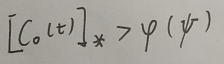 [C₀(t)]_* > φ(ψ)